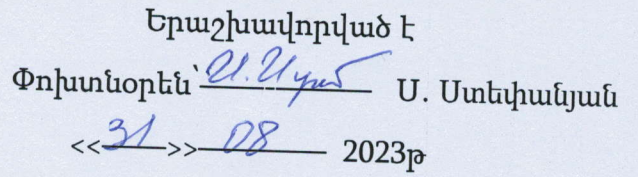 Երաշխավորված է
Փոխտնօրեն՝ Ս. Ստեփանյան
<<31>> 08 2023թ